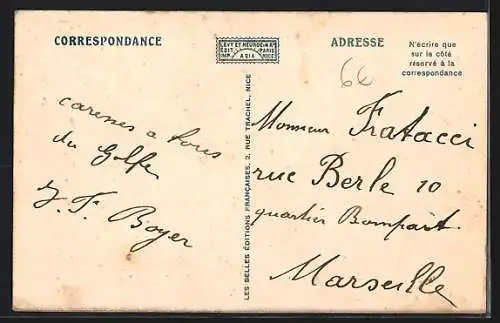 CORRESPONDANCE
LEVY ET NEURDEIN RIS
EDIT. PARIS
IMP. A DIX NICE
ADRESSE
N'écrire que
sur le côté
réservé à la
correspondance
6€
caresses a tous
du Golfe
J. F. Boyer
LES BELLES ÉDITIONS FRANÇAISES, 2, RUE TRACHEL, NICE
Monsieur Fratacci
rue Berle 10
quartier Bompart.
Marseille